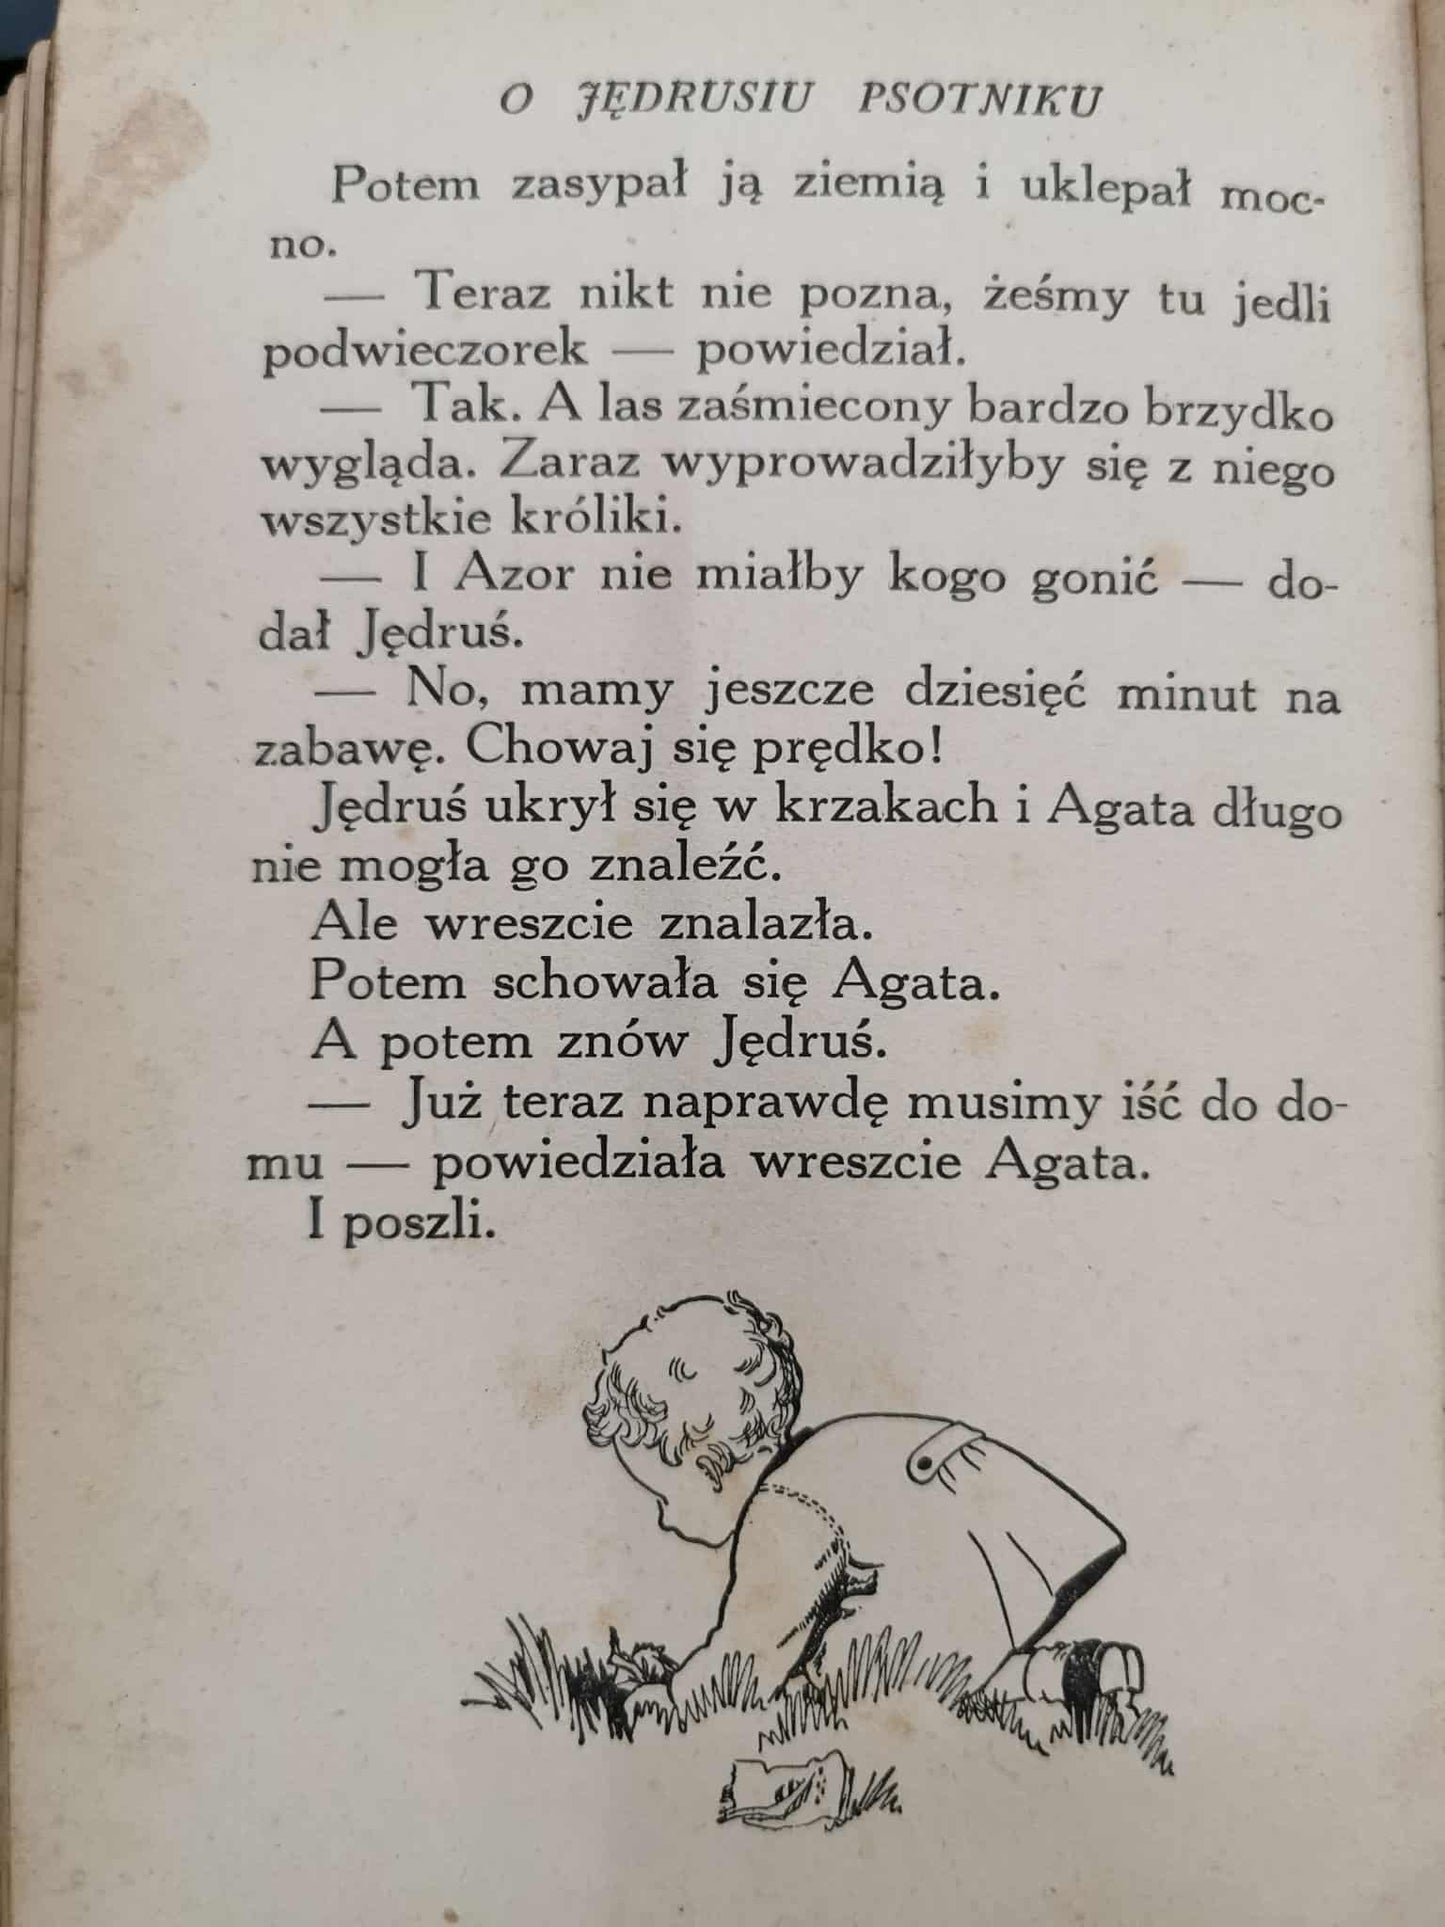 O JĘDRUSIU PSOTNIKU
Potem zasypał ją ziemią i uklepał moc-
no.
— Teraz nikt nie pozna, żeśmy tu jedli
podwieczorek — powiedział.
— Tak. A las zaśmiecony bardzo brzydko
wygląda. Zaraz wyprowadziłyby się z niego
wszystkie króliki.
— I Azor nie miałby kogo gonić — do-
dał Jędruś.
— No, mamy jeszcze dziesięć minut na
zabawę. Chowaj się prędko!
Jędruś ukrył się w krzakach i Agata długo
nie mogła go znaleźć.
Ale wreszcie znalazła.
Potem schowała się Agata.
A potem znów Jędruś.
— Już teraz naprawdę musimy iść do do-
mu — powiedziała wreszcie Agata.
I poszli.